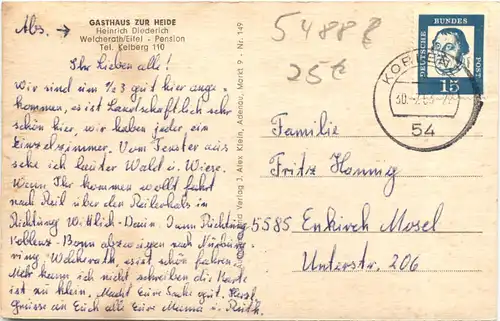 Abs. →
GASTHAUS ZUR HEIDE
Heinrich Diederich
Welcherath/Eifel - Pension
Tel. Kelberg 110
Ihr Lieben alle!
Wir sind um ½3 gut hier ange-
kommen, es ist Landschaftlich sehr
schön hier, wir haben jeder ein
Einzelzimmer. Vom Fenster aus
sehe ich lauter Wald u. Wiese.
Wenn Ihr kommen wollt fahrt
nach Reil über den Reilerhals in
Richtung Wittlich-Daun. Dann Richtung
Koblenz-Bonn abzweigen nach Nürburg-
ring, Welcherath, es ist schön fahren.
Mehr kann ich nicht schreiben die Karte
ist zu klein. Macht Eure Sache gut. Herzl.
Grüsse an Euch alle Eure Mama u. Ruth.
Verlag J. Alex Klein, Adenau, Markt 9 - Nr. 149
54888
25
DEUTSCHE BUNDES POST
15
54
Familie
Fritz Honnig
5585 Enkirch Mosel
Unterstr. 206